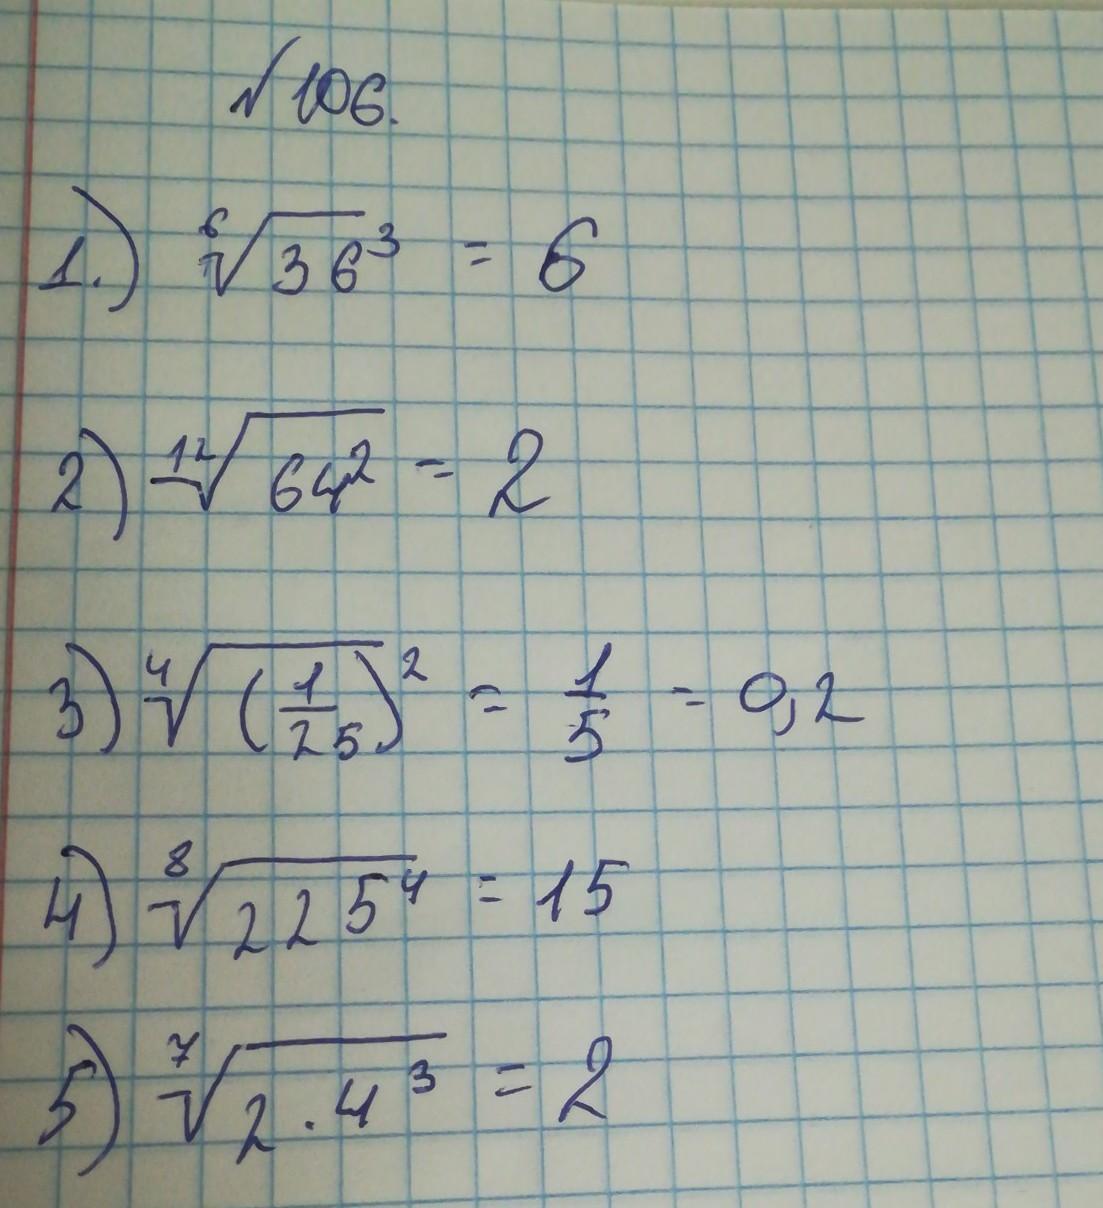 №106.
1.) ⁶√36³ = 6
2) ¹²√64² = 2
3) ⁴√(1/25)² = 1/5 = 0,2
4) ⁸√225⁴ = 15
5) ⁷√2·4³ = 2